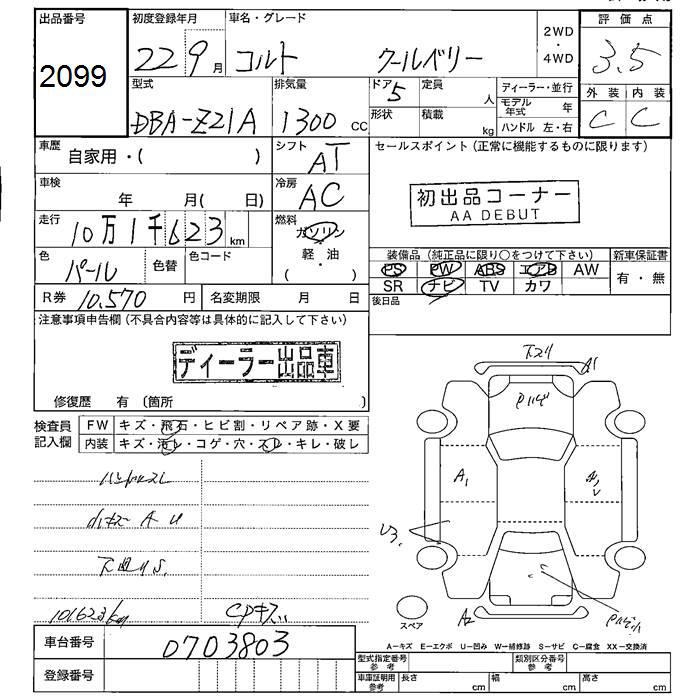 出品番号 初度登録年月 車名・グレード 2WD ・ 4WD 評価点
2099 22 9月 コルト クールベリー 3.5
型式 排気量 ドア 定員 ディーラー・並行 外装 内装
DBA-Z21A 1300 CC 5 人 モデル年式 年 C C
形状 積載 kg ハンドル 左・右
車歴 自家用・( ) シフト AT セールスポイント (正常に機能するものに限ります)
車検 年 月( 日) 冷房 AC 初出品コーナー
AA DEBUT
走行 10万1千623km 燃料 ガソリン
軽・油
( ・ )
色 パール 色替 色コード 装備品 (純正品に限り○をつけて下さい) 新車保証書
PS PW ABS エアB AW 有・無
R券 10,570 円 名変期限 月 日 SR ナビ TV カワ
後日品
注意事項申告欄 (不具合内容等は具体的に記入して下さい)
ディーラー出品車
修復歴 有 (箇所 )
検査員記入欄 FW キズ・飛石・ヒビ割・リペア跡・X要
内装 キズ・汚レ・コゲ・穴・スレ・キレ・破レ
下スリ A1
A1
U3
ハンドルスレ
小キズ A U
101623km CPキズ
A2
スペア
車台番号 0703803
A-キズ E-エクボ U-凹み W-補修跡 S-サビ C-腐食 XX-交換済
登録番号 型式指定番号 参考 類別区分番号 参考
車庫証明用 参考 長さ cm 幅 cm 高さ cm